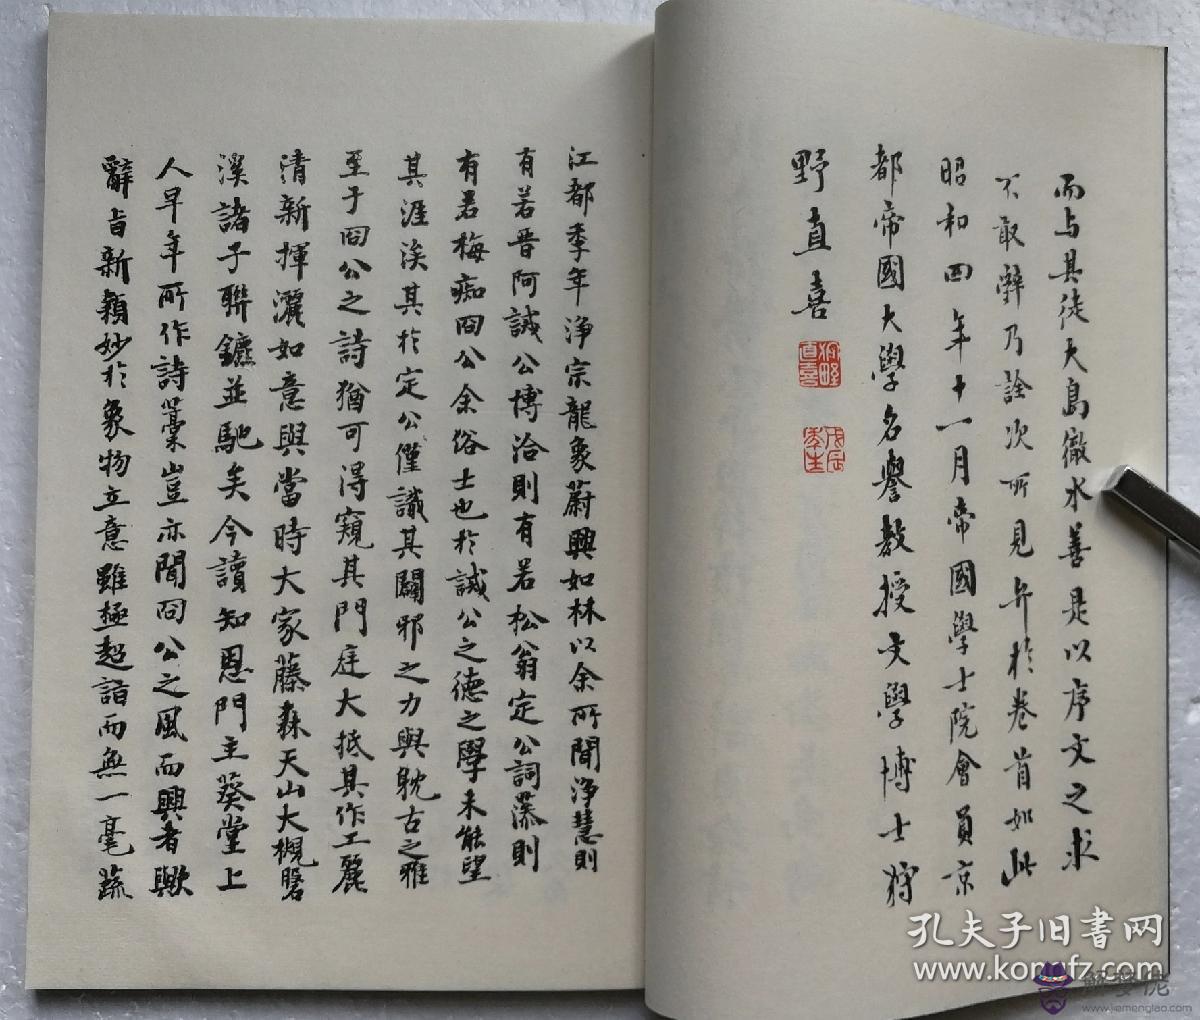 而与其徒大島徹水善是以序文之求
不敢辭乃詮次所見弁於卷首如此
昭和四年十一月帝國學士院會員京
都帝國大學名譽教授文學博士狩
野直喜
狩野
直喜
戊辰
季生
江都季年淨宗龍象蔚興如林以余所聞淨慧則
有若普阿誠公博洽則有若松翁定公詞藻則
有若梅痴冏公余俗士也於誠公之德之學未能望
其涯涘其於定公僅識其闢邪之力與耽古之雅
至于冏公之詩猶可得窺其門庭大抵其作工麗
清新揮灑如意與當時大家藤森天山大槻磐
溪諸子聯鑣並馳矣今讀知恩門主葵堂上
人早年所作詩藁豈亦聞冏公之風而興者歟
辭旨新穎妙於象物立意雖極超詣而無一毫蔬
孔夫子旧书网
www.kongfz.com
解梦佬
www.jiemenglao.com